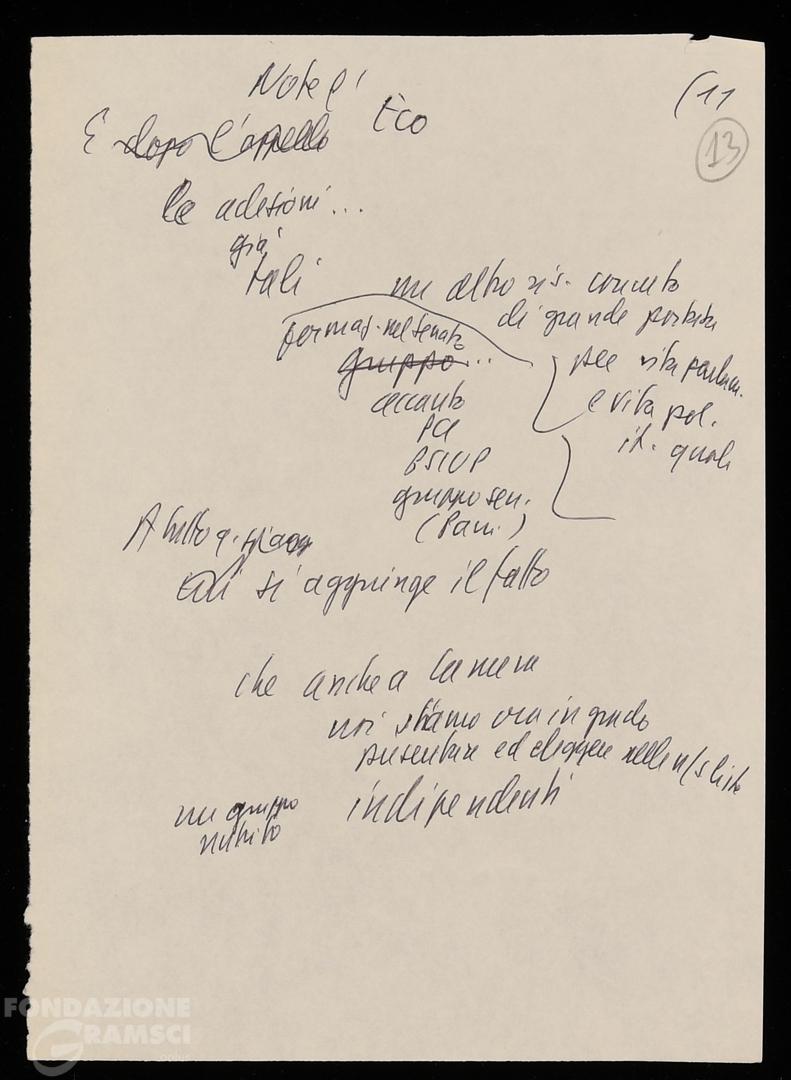 Note l'
Eco
(11
13
E dopo l'appello
le adesioni...
già
tali
un altro ris. concreto
di grande portata
per vita parlam.
e vita pol.
it. quale
formaz. nel Senato
gruppo...
accanto
PCI
PSIUP
gruppo sen.
(Parri)
A tutto q.
si aggiunge il fatto
che anche a Camera
noi siamo ora in grado
presentare ed eleggere nelle n/s liste
un gruppo
nutrito
indipendenti
FONDAZIONE
GRAMSCI